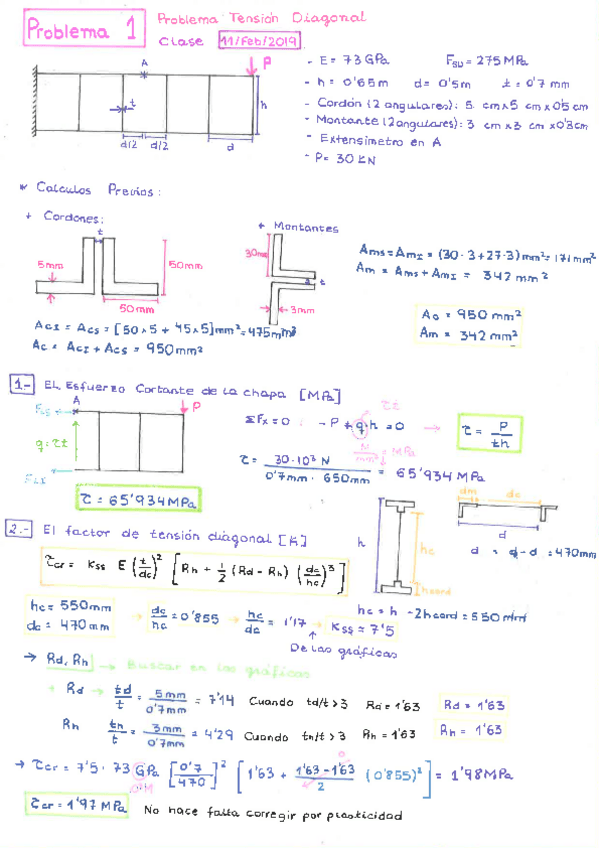 Problema 1
Problema Tensión Diagonal
Clase 11/Feb/2019
A
P
t
h
d/2 d/2 d
- E = 73 GPa Fsu = 275 MPa
- h = 0'65m d = 0'5m t = 0'7 mm
- Cordón (2 angulares): 5 cm x 5 cm x 0'5 cm
- Montante (2 angulares): 3 cm x 3 cm x 0'3 cm
- Extensímetro en A
- P = 30 KN
* Calculos Previos:
+ Cordones:
t
5mm
50mm
50mm
AcI = Acs = [50x5 + 45x5] mm² = 475 mm²
Ac = AcI + Acs = 950 mm²
+ Montantes
30mm
t
3mm
Ams = AmI = (30·3 + 27·3) mm² = 171 mm²
Am = Ams + AmI = 342 mm²
Ac = 950 mm²
Am = 342 mm²
1.- EL Esfuerzo Cortante de la chapa [MPa]
A
P
q = τt
ΣFx = 0 : -P + q·h = 0 → τ = P/th
τt
τ = 30·10³ N / 0'7mm · 650mm = 65'934 MPa
N/mm² = MPa
τ = 65'934 MPa
2.- El factor de tensión diagonal [K]
h
hc
hcord
dm dc
d
τcr = Kss E (t/dc)² [Rh + 1/2 (Rd - Rh) (dc/hc)³]
dc = d - d = 470mm
hc = h - 2hcord = 550 mm
hc = 550mm
dc = 470 mm
→ dc/hc = 0'855 → hc/dc = 1'17 → Kss = 7'5
De las gráficas
→ Rd, Rh → Buscar en las gráficas
Rd → td/t = 5mm/0'7mm = 7'14 Cuando td/t > 3 Rd = 1'63 Rd = 1'63
Rh th/t = 3mm/0'7mm = 4'29 Cuando th/t > 3 Rh = 1'63 Rh = 1'63
→ τcr = 7'5 · 73 GPa [0'7/470]² [1'63 + 1'63-1'63/2 (0'855)²] = 1'98 MPa
0
τcr = 1'97 MPa No hace falta corregir por plasticidad